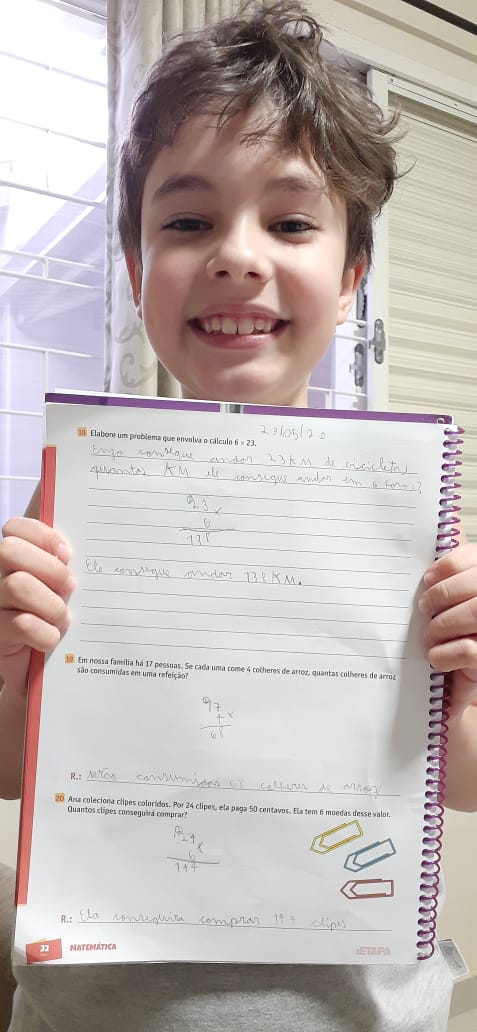 29/05/20
18 Elabore um problema que envolva o cálculo 6 × 23.
Enzo consegue andar 23 KM de bicicleta,
quantos KM ele consegue andar em 6 horas?
23
x
6
138
Ele consegue andar 138 KM.
19 Em nossa família há 17 pessoas. Se cada uma come 4 colheres de arroz, quantas colheres de arroz
são consumidas em uma refeição?
17
4 x
68
R.: Serão consumidas 68 colheres de arroz
20 Ana coleciona clipes coloridos. Por 24 clipes, ela paga 50 centavos. Ela tem 6 moedas desse valor.
Quantos clipes conseguirá comprar?
24
x
6
144
R.: Ela conseguira comprar 144 clipes
32 MATEMÁTICA
ETAPA